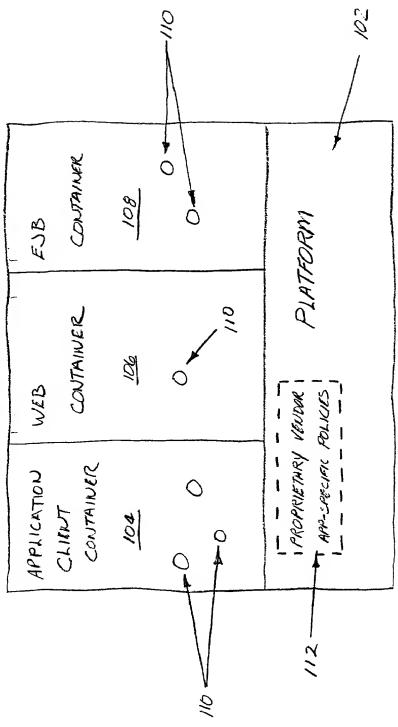 APPLICATION
CLIENT
CONTAINER
104
WEB
CONTAINER
106
EJB
CONTAINER
108
110
110
110
PLATFORM
102
PROPRIETARY VENDOR
APP-SPECIFIC POLICIES
112